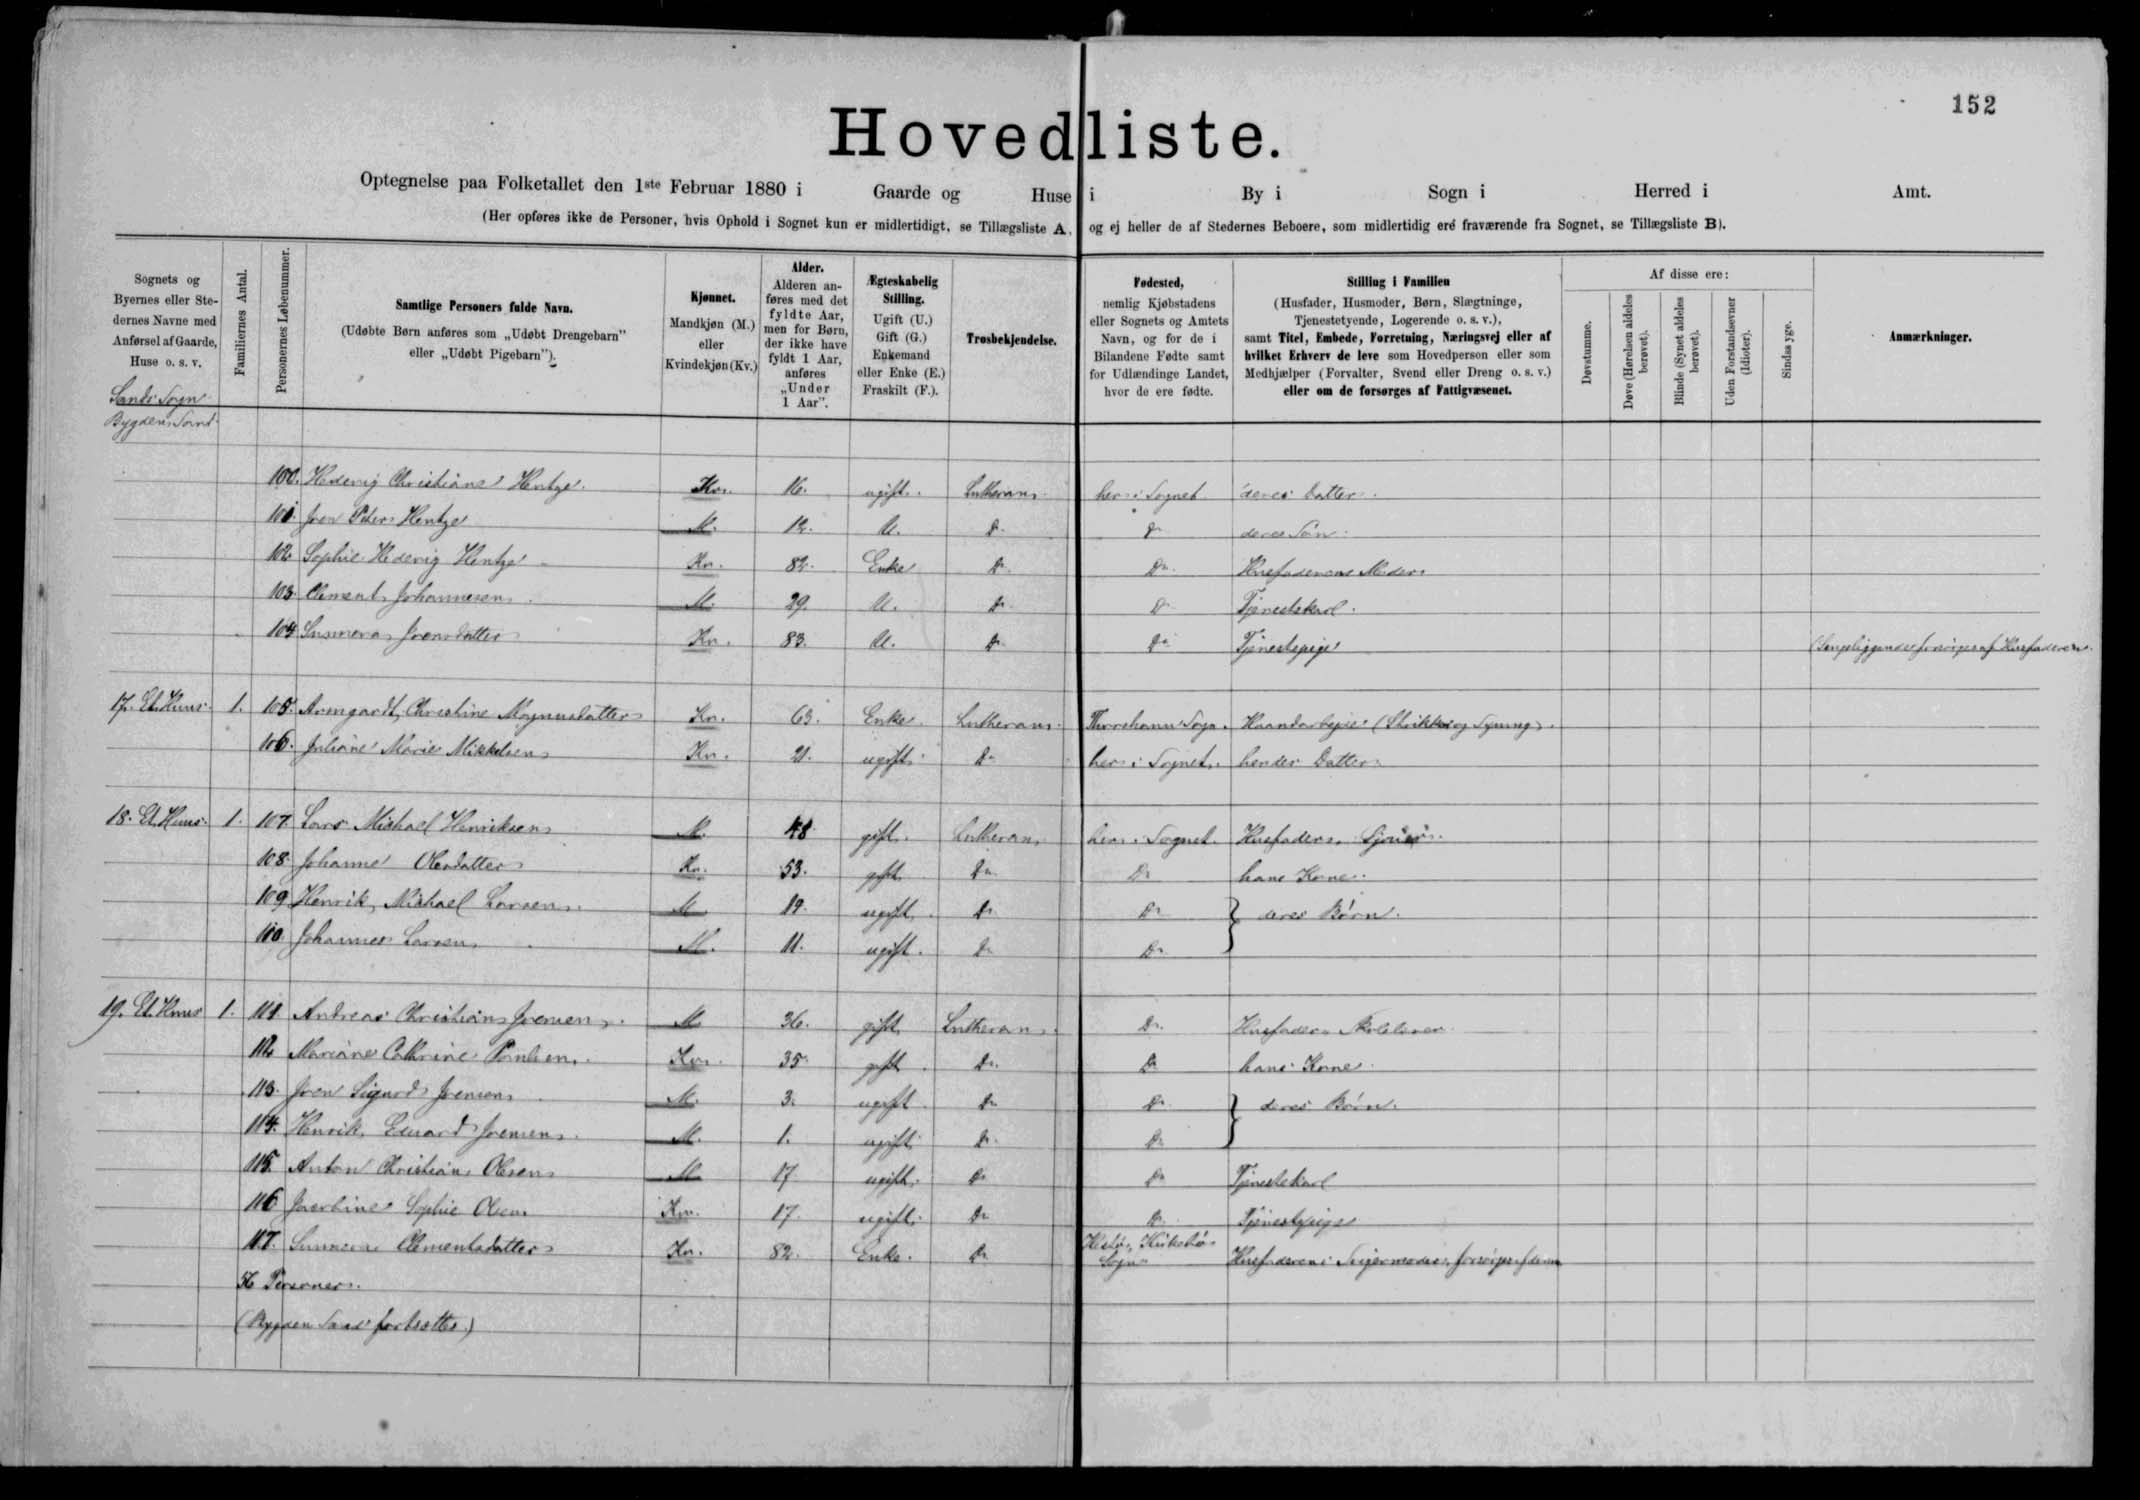 152
Hovedliste.
Optegnelse paa Folketallet den 1ste Februar 1880 i Gaarde og Huse i By i Sogn i Herred i Amt.
(Her opføres ikke de Personer, hvis Ophold i Sognet kun er midlertidigt, se Tillægsliste A, og ej heller de af Stedernes Beboere, som midlertidig ere fraværende fra Sognet, se Tillægsliste B).
Sognets og Byernes eller Stedernes Navne med Anførsel af Gaarde, Huse o. s. v.
Familiernes Antal.
Personernes Løbenummer.
Samtlige Personers fulde Navn.
(Udøbte Børn anføres som „Udøbt Drengebarn"
eller „Udøbt Pigebarn").
Kjønnet.
Mandkjøn (M.)
eller
Kvindekjøn (Kv.)
Alder.
Alderen an-
føres med det
fyldte Aar,
men for Børn,
der ikke have
fyldt 1 Aar,
anføres
„Under
1 Aar".
Ægteskabelig
Stilling.
Ugift (U.)
Gift (G.)
Enkemand
eller Enke (E.)
Fraskilt (F.).
Trosbekjendelse.
Fødested,
nemlig Kjøbstadens
eller Sognets og Amtets
Navn, og for de i
Bilandene Fødte samt
for Udlændinge Landet,
hvor de ere fødte.
Stilling i Familien
(Husfader, Husmoder, Børn, Slægtninge,
Tjenestetyende, Logerende o. s. v.),
samt Titel, Embede, Forretning, Næringsvej eller af
hvilket Erhverv de leve som Hovedperson eller som
Medhjælper (Forvalter, Svend eller Dreng o. s. v.)
eller om de forsørges af Fattigvæsenet.
Af disse ere:
Døvstumme.
Døve (Hørelsen aldeles berøvet).
Blinde (Synet aldeles berøvet).
Uden Forstandsevner (Idioter).
Sindssyge.
Anmærkninger.
Sands Sogn
Bygden Sand
100. Hedevig Christiane Hentze. Kv. 16. ugift. Lutheran her i Sognet deres Datter.
101. Joen Peter Hentze M. 12. U. Do Do deres Søn.
102. Sophie Hedevig Hentze Kv. 82. Enke Do Do Husfaderens Moder
103. Clement Johannesen M. 29. U. Do Do Tjenestekarl.
104. Sunneva Joensdatter Kv. 83. U. Do Do Tjenestepige (Sengeliggende forsørges af Husfaderen.
17. Et Huus. 1. 105. Armgardt Christine Magnusdatter Kv. 63. Enke. Lutheran. Thorshavn Sogn. Haandarbejde (Strikke og Syning).
106. Juliane Marie Mikkelsen Kv. 21. ugift. Do her i Sognet. hendes Datter
18. Et Huus. 1. 107. Lars Michael Henriksen M. 48 gift. Lutheran her i Sognet. Husfader,
108. Johanne Olesdatter Kv. 53. gift. Do Do hans Kone.
109 Henrik Michael Larsen. M. 19. ugift. Do Do } deres Børn.
110. Johannes Larsen M. 11. ugift. Do Do
19. Et Huus 1. 111 Andreas Christian Joensen. M 36. gift Lutheran. Do Husfader, Skolelærer
112 Mariane Cathrine Poulsen. Kv. 35. gift. Do Do hans Kone
113. Joen Sigurd Joensen M. 3. ugift Do Do } deres Børn.
114. Henrik Eduard Joensen M. 1. ugift Do Do
115. Anton Christian Olsen M 17 ugift. Do Do Tjenestekarl
116 Jacobine Sophie Olsen Kv. 17. ugift. Do Do Tjenestepige
117. Clementsdatter Kv. 82. Enke. Do Kirkebø Sogn Husfaderens Svigermoder, forsørges af
Personer.
(Bygden Sand fortsættes)